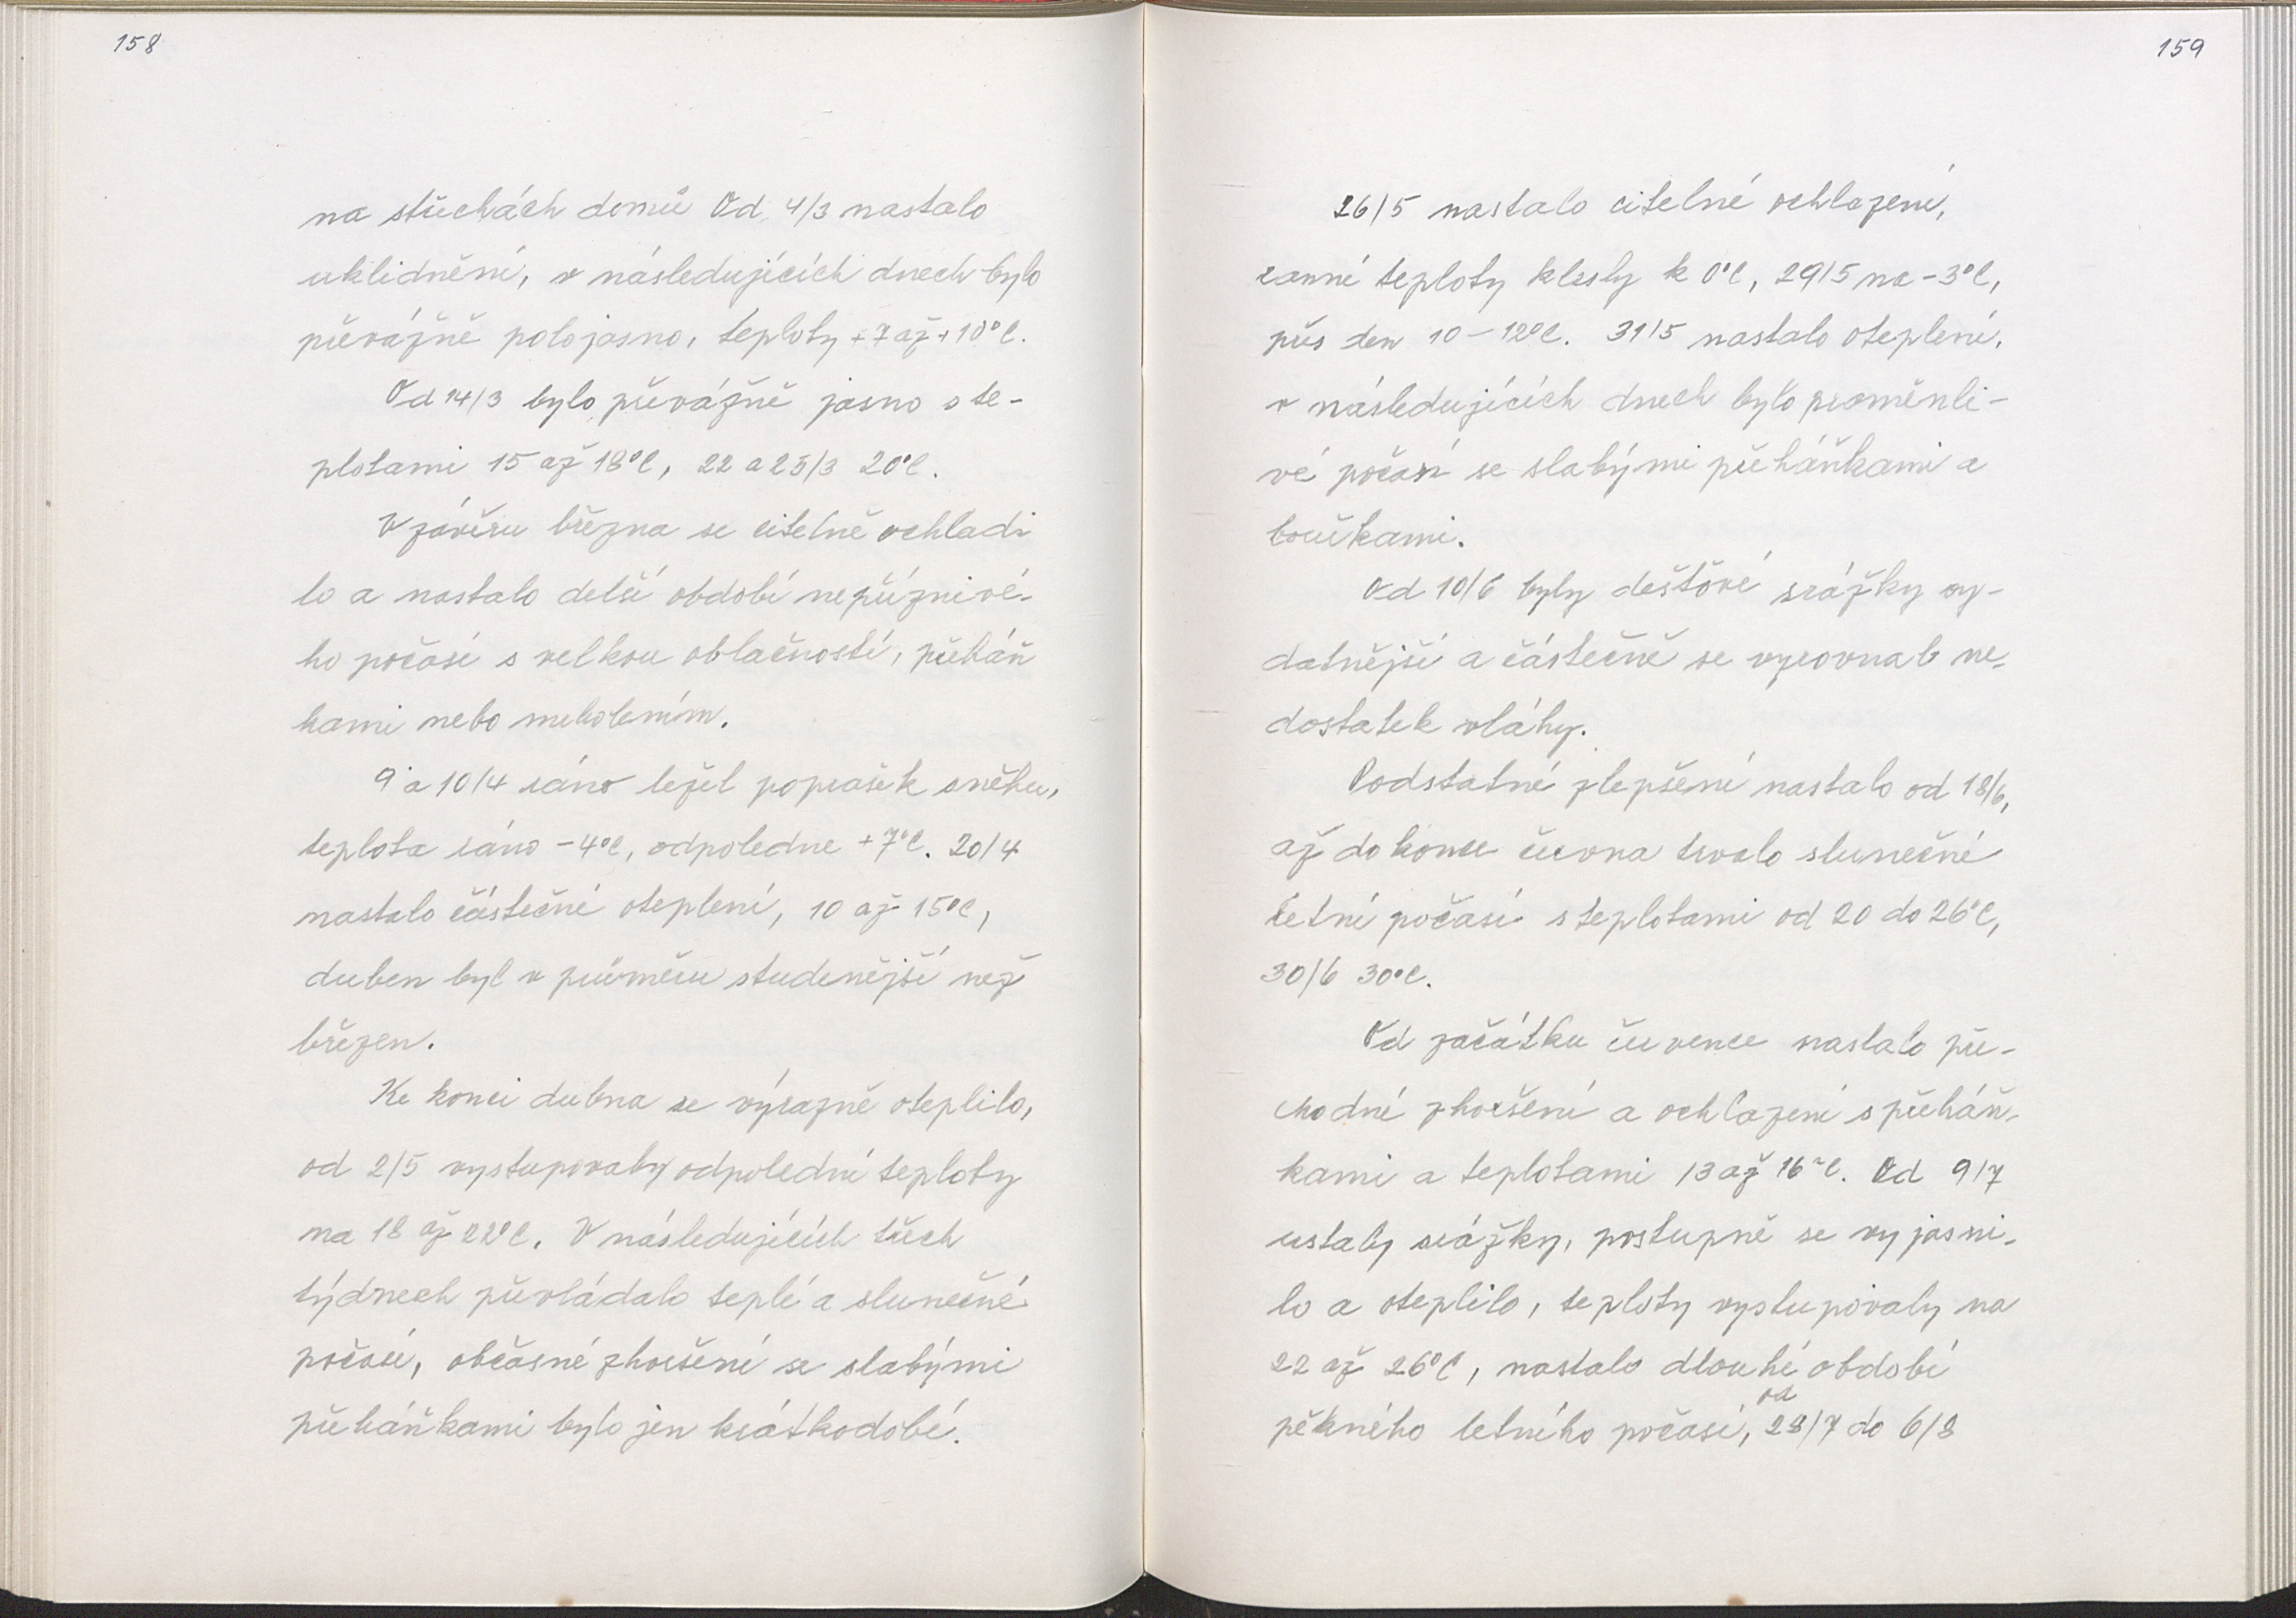 158
na střechách domů Od 4/3 nastalo
uklidnění, v následujících dnech bylo
převážně polojasno, teploty +7 až +10°C.
Od 14/3 bylo převážně jasno s te-
plotami 15 až 18°C, 22 a 25/3 20°C.
V závěru března se citelně ochladi
lo a nastalo delší období nepříznivé-
ho počasí s velkou oblačností, přeháň
kami nebo mrholením.
9 a 10/4 ráno ležel poprašek sněhu,
teplota ráno -4°C, odpoledne +7°C. 20/4
nastalo částečné oteplení, 10 až 15°C,
duben byl v průměru studenější než
březen.
Ke konci dubna se výrazně oteplilo,
od 2/5 vystupovaly odpolední teploty
na 18 až 22°C. V následujících třech
týdnech převládalo teplé a slunečné
počasí, občasné zhoršení se slabými
přeháňkami bylo jen krátkodobé.
159
26/5 nastalo citelné ochlazení,
ranní teploty klesly k 0°C, 29/5 na -3°C,
přes den 10-12°C. 31/5 nastalo oteplení,
v následujících dnech bylo proměnli-
vé počasí se slabými přeháňkami a
bouřkami.
Od 10/6 byly dešťové srážky vy-
datnější a částečně se vyrovnal ne-
dostatek vláhy.
Podstatné zlepšení nastalo od 18/6,
až do konce června trvalo slunečné
letní počasí s teplotami od 20 do 26°C,
30/6 30°C.
Od začátku července nastalo pře-
chodné zhoršení a ochlazení s přeháň-
kami a teplotami 13 až 16°C. Od 9/7
ustaly srážky, postupně se vyjasni-
lo a oteplilo, teploty vystupovaly na
22 až 26°C, nastalo dlouhé období
pěkného letního počasí, od 28/7 do 6/8